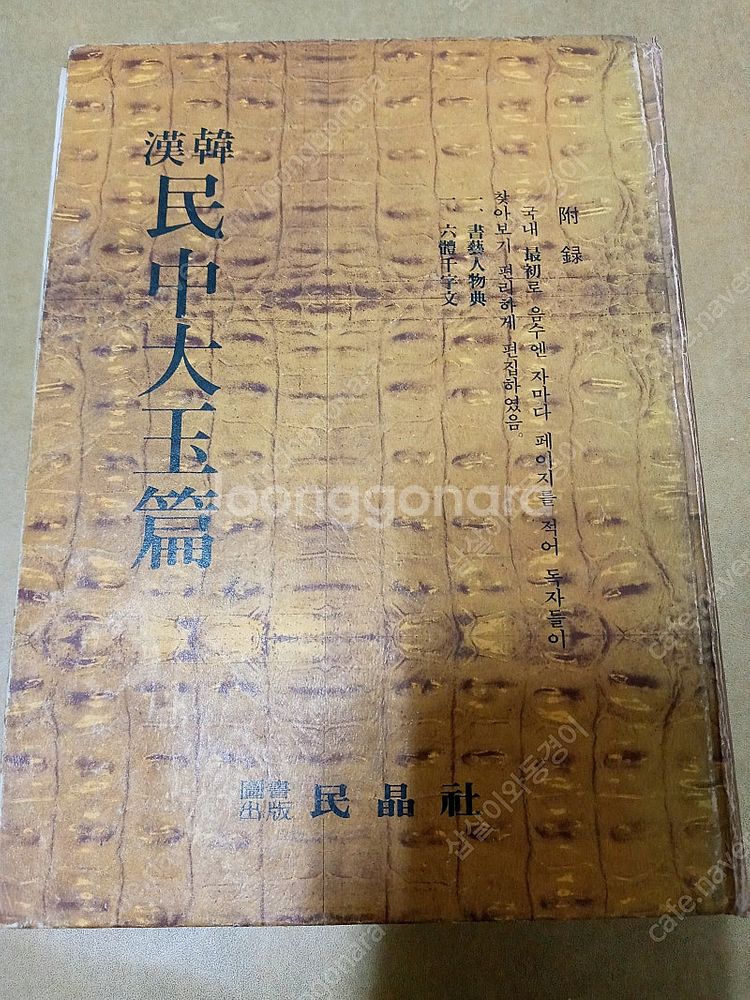 附録
국내 最初로 음수엔 자마다 페이지를 적어 독자들이
찾아보기 편리하게 편집하였음。
一、書藝人物典
一、六體千字文
漢韓
民中大玉篇
圖書
出版 民晶社
joonggonara
삽살이와동경이